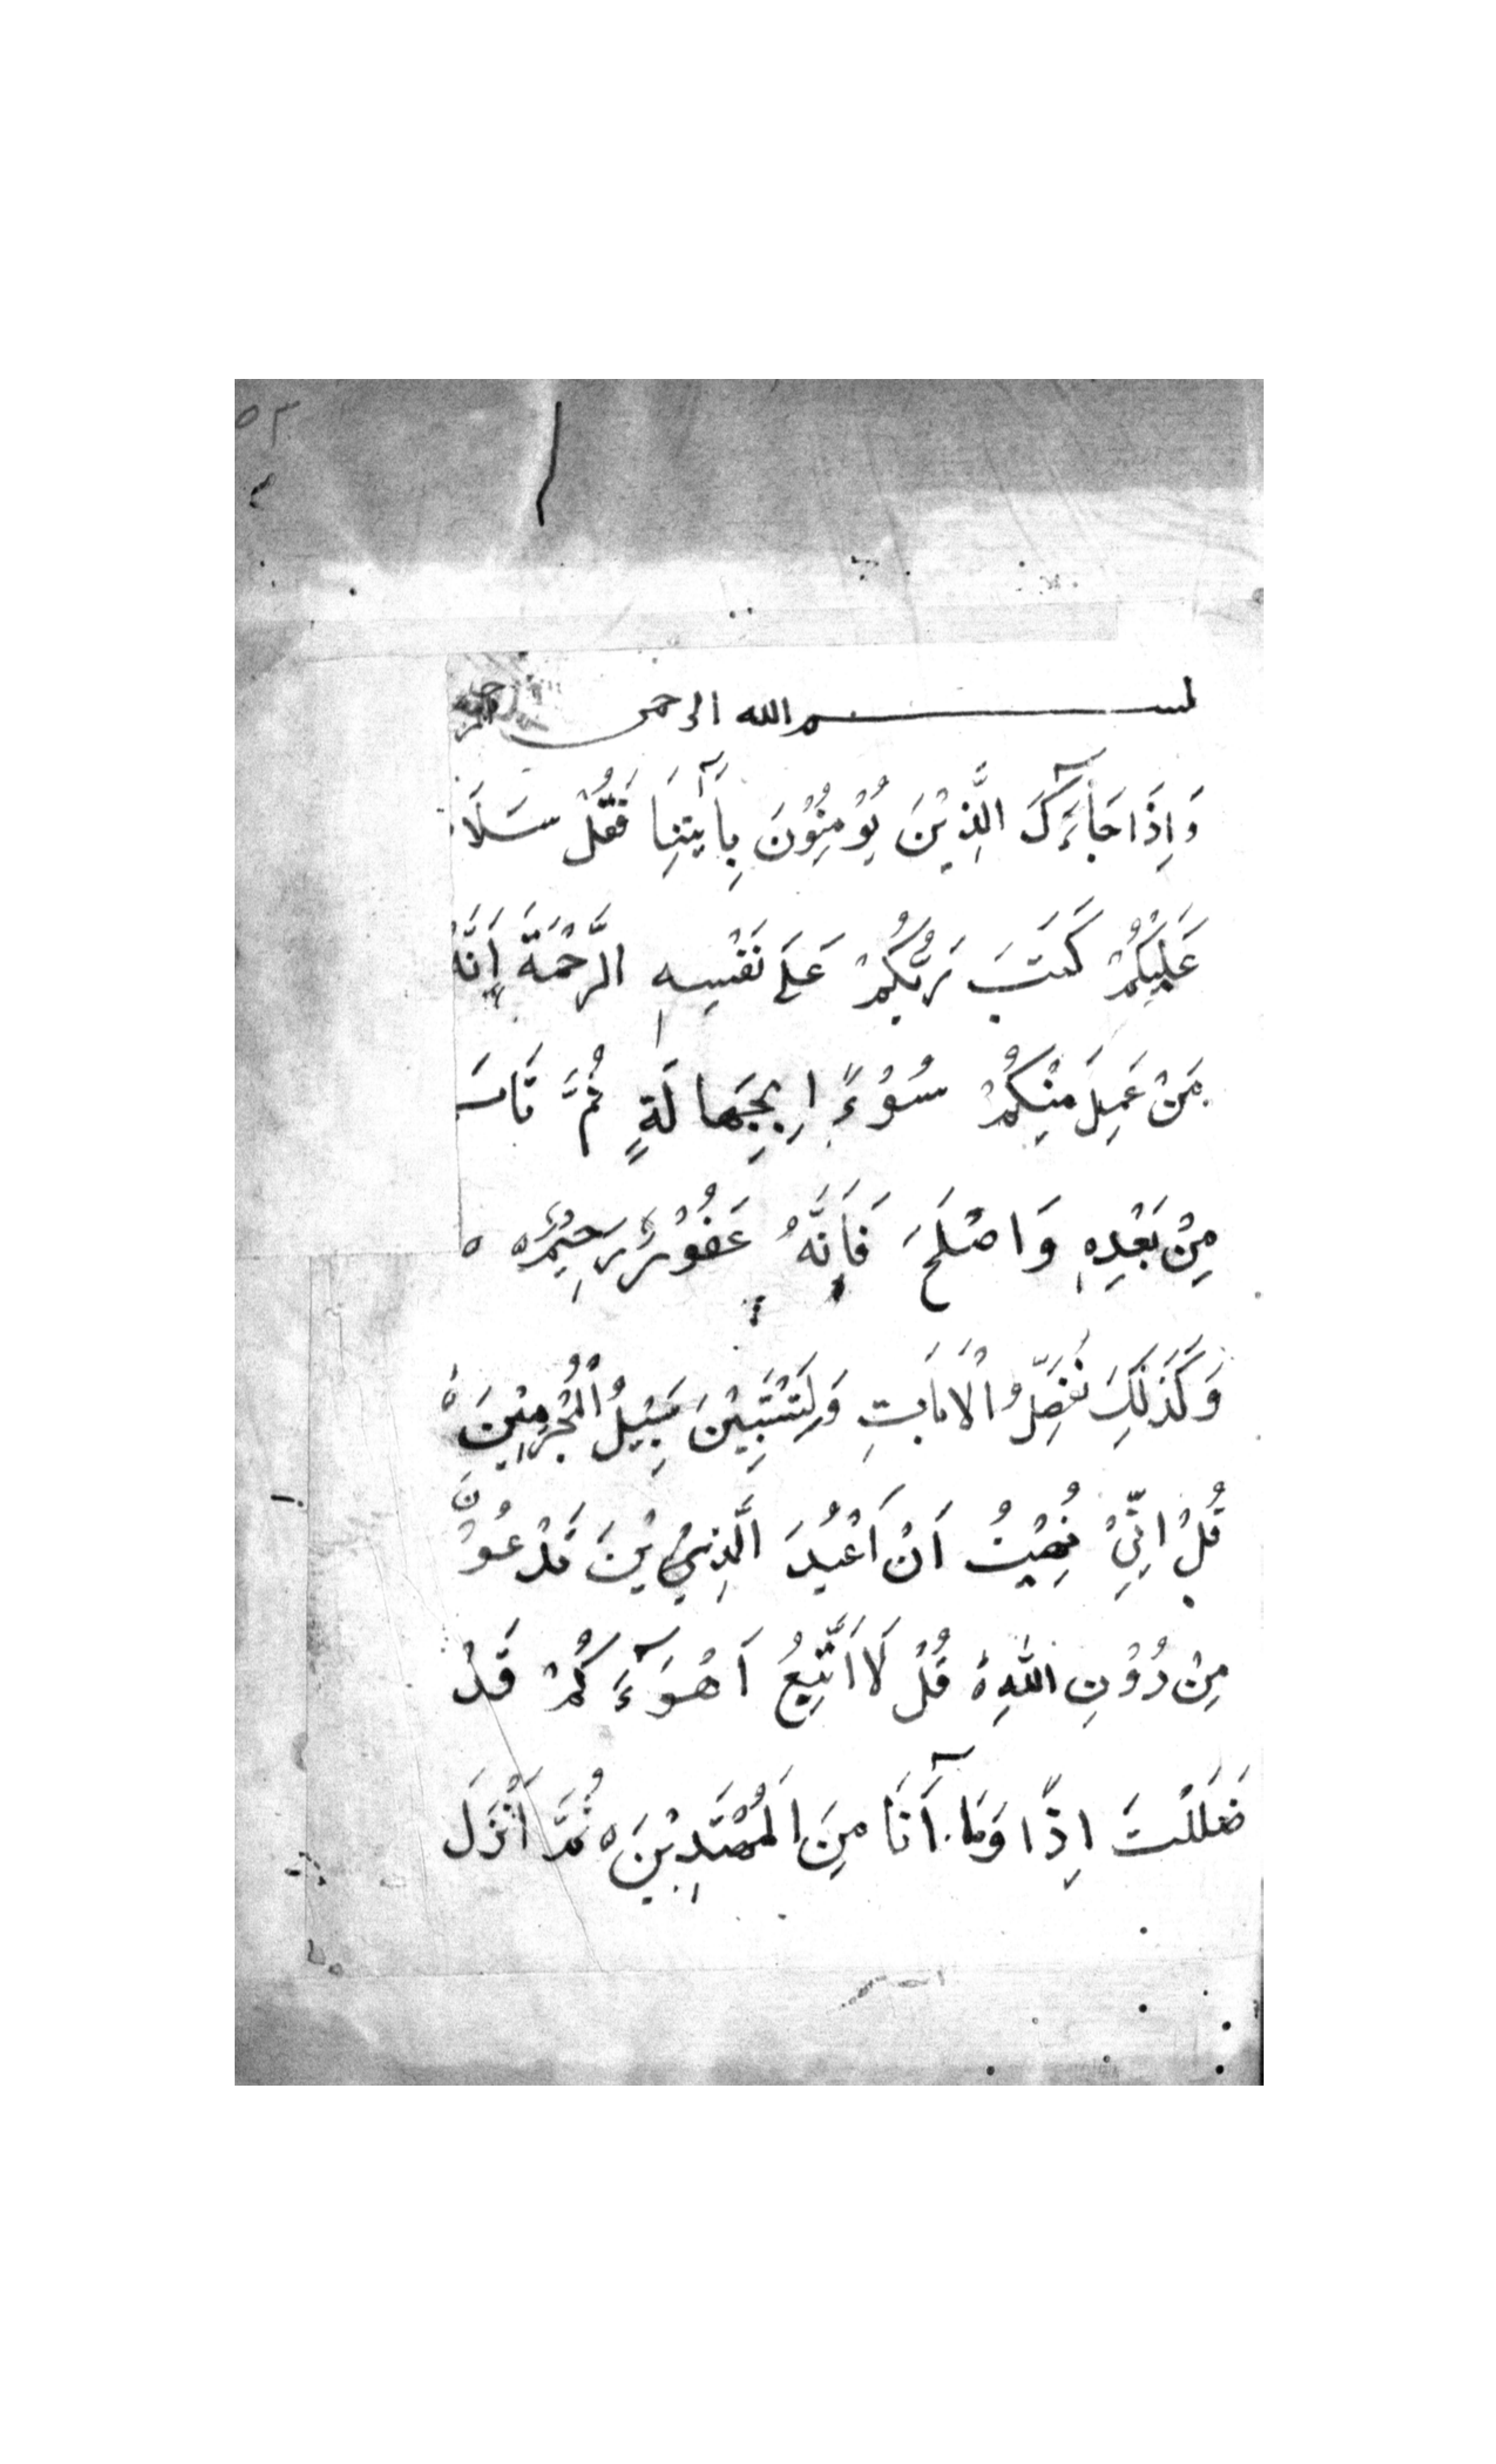 ٥٣
بسم الله الرحمن
وَاِذَا جَآءَكَ الَّذِيْنَ يُؤْمِنُوْنَ بِاٰيٰتِنَا فَقُلْ سَلَا
عَلَيْكُمْ كَتَبَ رَبُّكُمْ عَلَى نَفْسِهِ الرَّحْمَةَ اِنَّهُ
مَنْ عَمِلَ مِنْكُمْ سُوْءًا بِجَهَالَةٍ ثُمَّ تَابَ
مِنْ بَعْدِهِ وَاصْلَحَ فَاِنَّهُ غَفُوْرٌ رَحِيْمٌ ہ ہ
وَكَذٰلِكَ نُفَصِّلُ الْاٰيٰتِ وَلِتَسْتَبِيْنَ سَبِيْلُ الْمُجْرِمِيْنَ ہ
قُلْ اِنِّيْ نُهِيْتُ اَنْ اَعْبُدَ الَّذِيْنَ تَدْعُوْنَ
مِنْ دُوْنِ اللّٰهِ ہ قُلْ لَا اَتَّبِعُ اَهْوَآءَكُمْ قَدْ
ضَلَلْتُ اِذًا وَمَا اَنَا مِنَ الْمُهْتَدِيْنَ ہ ثُمَّ اَنْزَلَ